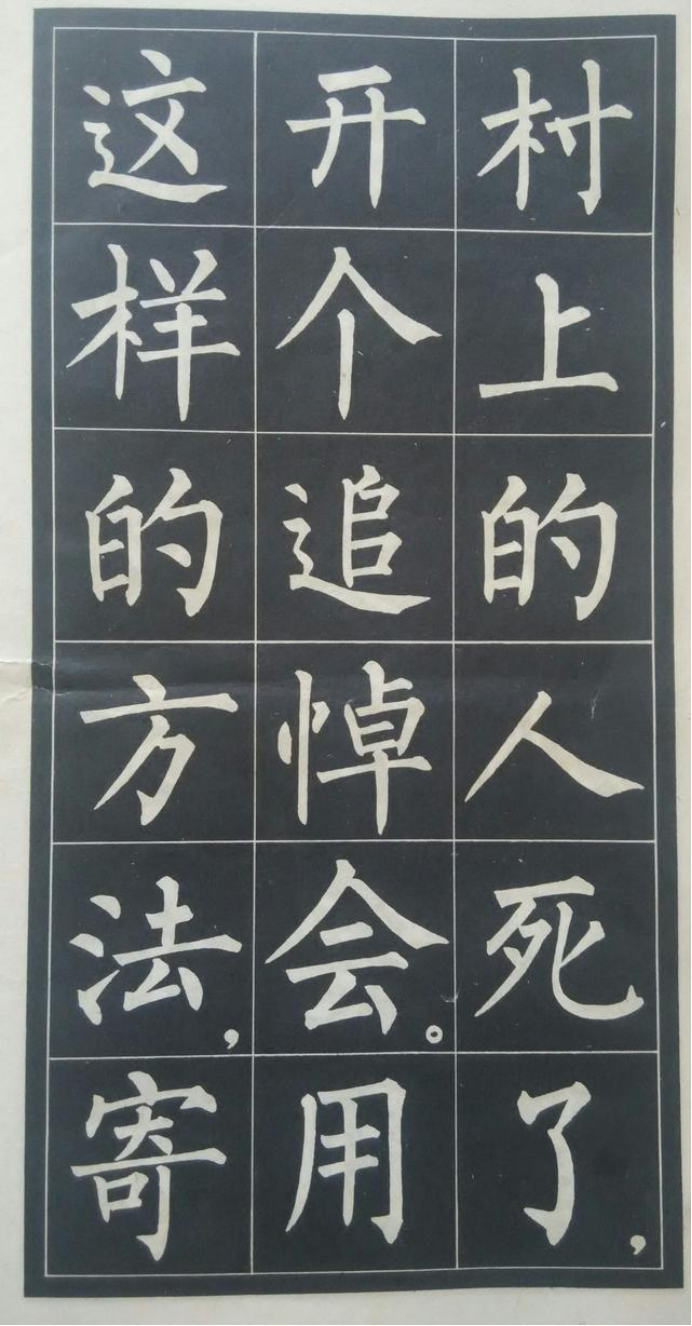 村上的人死了，
开个追悼会。用
这样的方法，寄